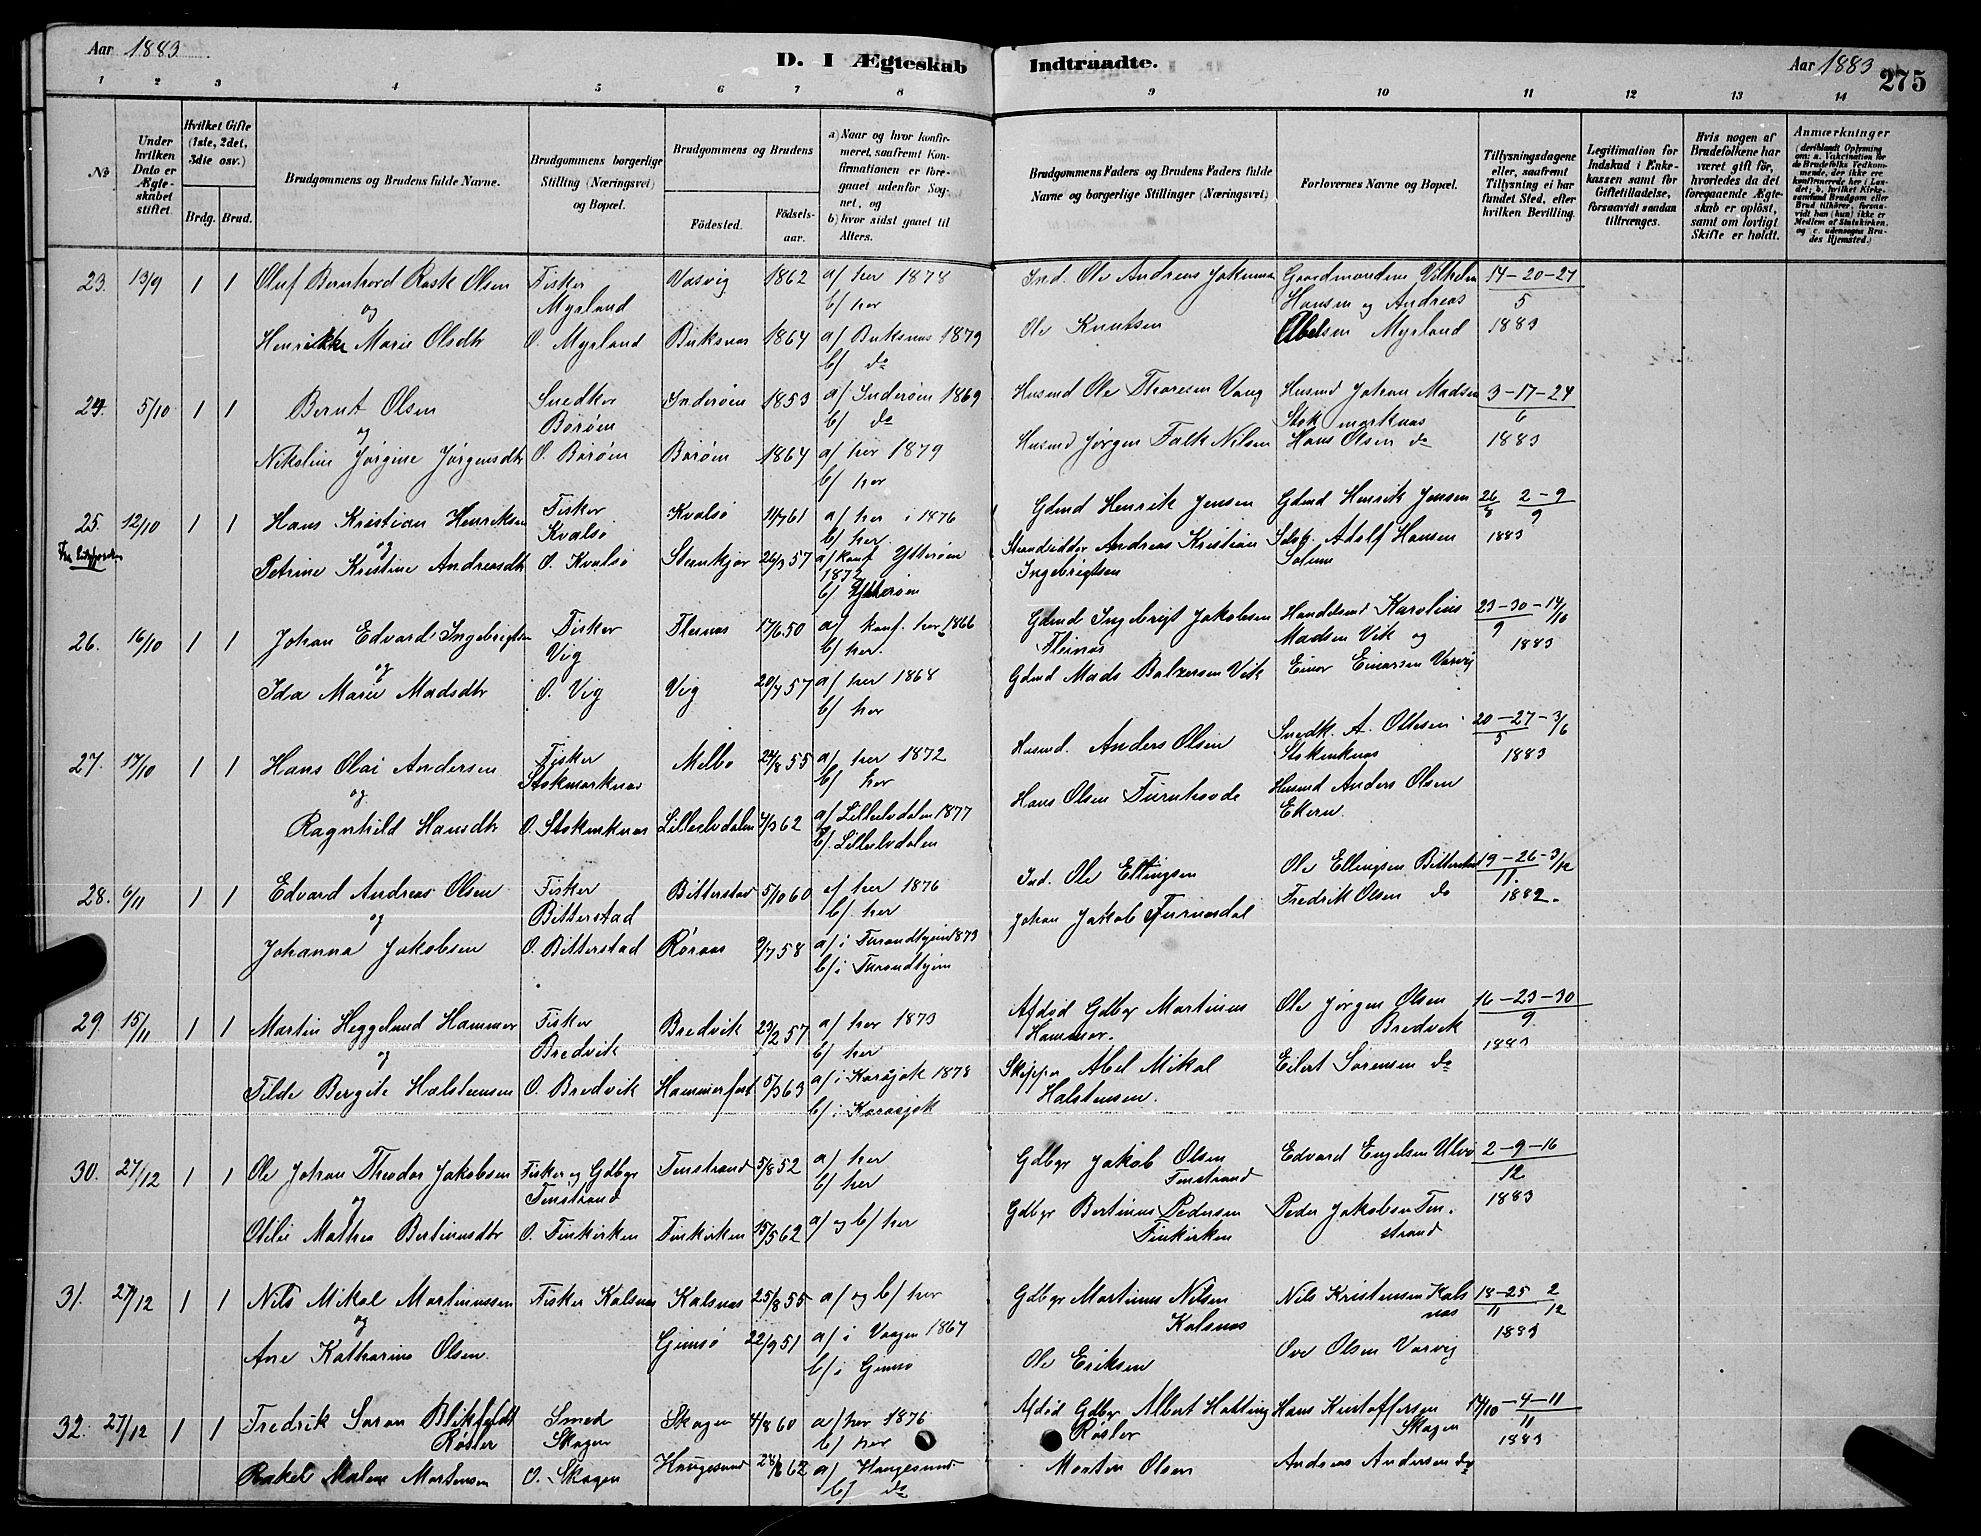 Aar 1883
D. I Ægteskab Indtraadte.
Aar 1883
275
1 2 3 4 5 6 7 8 9 10 11 12 13 14
No
Under hvilken Dato er Ægteskabet stiftet.
Hvilket Gifte (1ste, 2det, 3die osv.)
Brdg. Brud.
Brudgommens og Brudens fulde Navne.
Brudgommens borgerlige Stilling (Næringsvei) og Bopæl.
Brudgommens og Brudens
Födested.
Födsels-aar.
a) Naar og hvor konfirmeret, saafremt Konfirmationen er foregaaet udenfor Sognet, og
b) hvor sidst gaaet til Alters.
Brudgommens Faders og Brudens Faders fulde Navne og borgerlige Stillinger (Næringsvei)
Forlovernes Navne og Bopæl.
Tillysningsdagene eller, saafremt Tillysning ei har fundet Sted, efter hvilken Bevilling.
Legitimation for Indskud i Enkekassen samt for Giftetilladelse, forsaavidt saadan tiltrænges.
Hvis nogen af Brudefolkene har været gift för, hvorledes da det foregaaende Ægteskab er oplöst, samt om lovligt Skifte er holdt.
Anmærkninger
(deriblandt Oplysning om: a. Vakcination for de Brudefolks Vedkommende, der ikke ere konfirmerede her i Landet; b. hvilket Kirkesamfund Brudgom eller Brud tilhörer, forsaavidt han (hun) ikke er Medlem af Statskirken, og c. udensogns Brudes Hjemsted.)
23. 13/9 1 1 Oluf Bernhard Rask Olsen Fisker Myrland Vasvig 1862 a/ her 1878 b/ her Ind. Ole Andreas Gaardmændene Vilhelm Hansen og Andreas 14-20-27/5
og
Henrikke Marie Olsdtr O. Myrland Buksnæs 1864 a/ Buksnæs 1879 b/ do Ole Knutsen Abelsen Myrland 1883
24. 5/10 1 1 Bernt Olsen Snedker Børøen Inderøen 1853 a/ Inderøen 1869 b/ do Husmd Ole Thoresen Vang Husmd Johan Madsen Stokmarknæs 3-17-24/6
og
Nikoline Jørgine Jørgensdtr O. Børøen Børøen 1864 a/ her 1879 b/ her Husmd Jørgen Falk Nilsen Hans Olsen do 1883
25. 12/10 1 1 Hans Kristian Henriksen Fisker Kvalsø Kvalsø 11/7 61 a/ her i 1876 b/ her. Gdmd Henrik Jensen Gdmd Henrik Jensen 26/8 2-9/9
og
Petrine Kristine Andreasdtr O. Kvalsø Stenkjær 26/3 57 a/ konf Ytterøen 1872 b/ Ytterøen Strandsidder Andreas Kristian Ingebrigtsen Adolf Hansen Solem 1883
26. 16/10 1 1 Johan Edvard Ingebrigtsen Fisker Vig Flesnæs 17/6 50 a/ konf. her 1866 b/ her. Gdmd Ingebrigt Jakobsen Flesnæs Handelsmd Karolius Madsen Vik og 23-30-14/16 9
og
Ida Marie Madsdtr O. Vig Vig 20/7 57 a/ her 1868 b/ her Gdmd Mads Balzersen Vik Einar Einarsen Varvig 1883
27. 17/10 1 1 Hans Olai Andersen Fisker Stokmarknæs Melbo 24/8 55 a/ her 1872 b/ her Husmd. Anders Olsen Snedk. A. Ottesen Stokmknæs 20-27-3/6 5
og
Ragnhild Hansdtr O. Stokmknæs Lilleelvdalen 4/3 62 a/ Lilleelvdalen 1877 b/ Lilleelvdalen Hans Olsen Turnhovde Husmd Anders Olsen Ekern. 1883
28. 6/11 1 1 Edvard Andreas Olsen Fisker Bitterstad Bitterstad 5/10 60 a/ her 1876 b/ her Ind. Ole Ellingsen Ole Ellingsen Bitterstad 19-26-3/12 11.
og
Johanna Jakobsen O. Bitterstad Røraas 9/7 58 a/ i Trondhjem 1873 b/ i Trondhjem Johan Jakob Furnesdal Fredrik Olsen do 1882.
29. 15/11 1 1 Martin Heggelund Hammer Fisker Bredvik Bredvik 23/2 57 a/ her 1873 b/ her Afdød Gdbgr Martinus Hammer. Ole Jørgen Olsen Bredvik 16-23-30/9
og
Tilde Bergite Halstensen O. Bredvik Hammerfest 5/3 63 a/ i Karasjok 1878 b/ i Karasjok Skipper Abel Mikal Halstensen. Eilert Sørensen do 1883
30. 27/12 1 1 Ole Johan Theodor Jakobsen Fisker og Gdbgr Finstrand Finstrand 5/8 52 a/ her b/ her Gdbgr Jakob Olsen Finstrand Edvard Engelsen Ulvø 2-9-16/12
og
Otilie Mathea Bertinusdtr O. Finkirken Finkirken 15/5 62 a/ og b/ her Gdbgr Bertinus Pedersen Finkirken Peder Jakobsen Finstrand 1883
31. 27/12 1 1 Nils Mikal Martinussen Fisker Kalsnæs Kalsnæs 25/8 55 a/ og b/ her Gdbgr Martinus Nilsen Kalsnæs Nils Kristensen Kalsnæs 18-25/11 2/12
og
Ane Katharina Olsen. Gimsø 22/9 51 a/ i Vaagen 1867 b/ i Gimsø Ole Eriksen Ove Olsen Varvig 1883
32. 27/12 1 1 Fredrik Søren Blikfeldt Røsler Smed Skagen Skagen 4/8 60 a/ her 1876 b/ her Afdød Gdbgr Albert Hatting Røsler Hans Kristoffersen Skagen 14/10-4-11/11
Rakel Malene Mortensen O. Skagen Haugesund 24/8 62 a/ Haugesund b/ do Morten Olsen Andreas Andersen do 1883